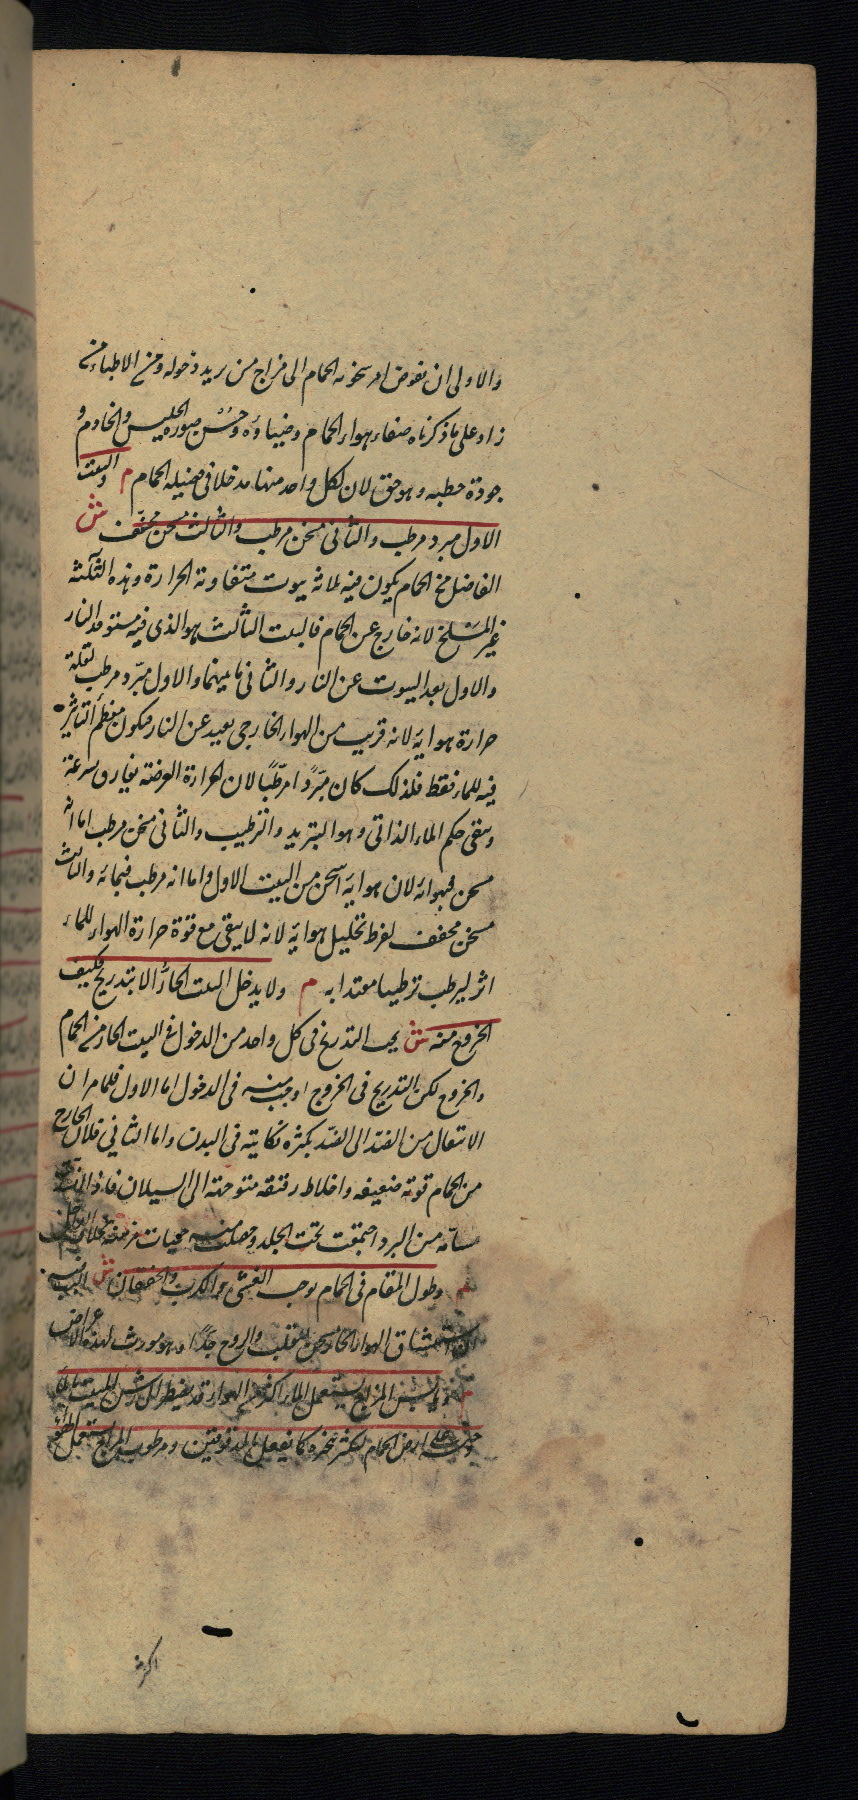 والاولى ان يفوض امر سخونه الحمام الى مزاج من يريد دخوله ومن الاطباء من
زاد على ما ذكرناه صفاء هواء الحمام وضياؤه وحسن صورة الجليس والخادم و
جودة حطبه وهو حق لان لكل واحد منها مدخلا فى فضيله الحمام م والبيت
الاول مبرد مرطب والثانى مسخن مرطب والثالث مسخن مجفف ش
الفاضل من الحمام يكون فيه ثلاثه بيوت متفاوتة الحرارة وهذه الثلثة
غير المسلخ لانه خارج عن الحمام فالبيت الثالث هو الذى فيه مستوقد النار
والاول بعد البيوت عن النار والثانى ما بينهما والاول مبرد مرطب لقلة
حرارة هوايه لانه قريب من الهواء الخارجى بعيد عن النار فيكون معظم التاثير
فيه للماء فقط فلذلك كان مبردا مرطبا لان الحرارة العرضة يفارق سرعة
ويبقى حكم الماء الذاتى وهو التبريد والترطيب والثانى مسخن مرطب اما انه
مسخن فبهوائه لان هوايه اسخن من البيت الاول واما انه مرطب فبمائه والثالث
مسخن مجفف لفرط تحليل هوايه لانه لا يبقى مع قوة حرارة الهواء للماء
اثر ليرطب ترطيبا معتدا به م ولا يدخل البيت الحار الا بتدريج فكيف
الخروج منه ش يجب التدريج فى كل واحد من الدخول فى البيت الحار من الحمام
والخروج لكن التدريج فى الخروج اوجب منه فى الدخول اما الاول فلما مر ان
الانتقال من الضد الى الضد يكثر نكايته فى البدن واما الثانى فلان الخارج
من الحمام قوته ضعيفه واخلاطه رقيقه متوجهة الى السيلان فاذا
مسامه من البرد اجتمعت تحت الجلد وحصلت منه حميات
م وطول المقام فى الحمام يوجب الغشى والكرب والخفقان ش
استنشاق الهواء الحار يسخن القلب والروح جدا وهو مورث لهذه الاعراض
م ويابس المزاج يستعمل الماء اكثر من الهواء وقد يضطر لرش البيت
على ارض الحمام ليكثر بخره كما يفعل بالمدقوقين ومرطوب المزاج يستعمل الهواء
اكثر